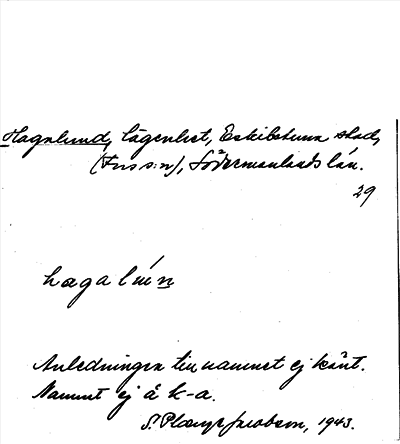 Hagalund, lägenhet, Eskilstuna stad,
(Fors s:n), Södermanlands län.
29
hagalún
Anledningen till namnet ej känt.
Namnet ej å k-a.
S. Jacobson, 1943.